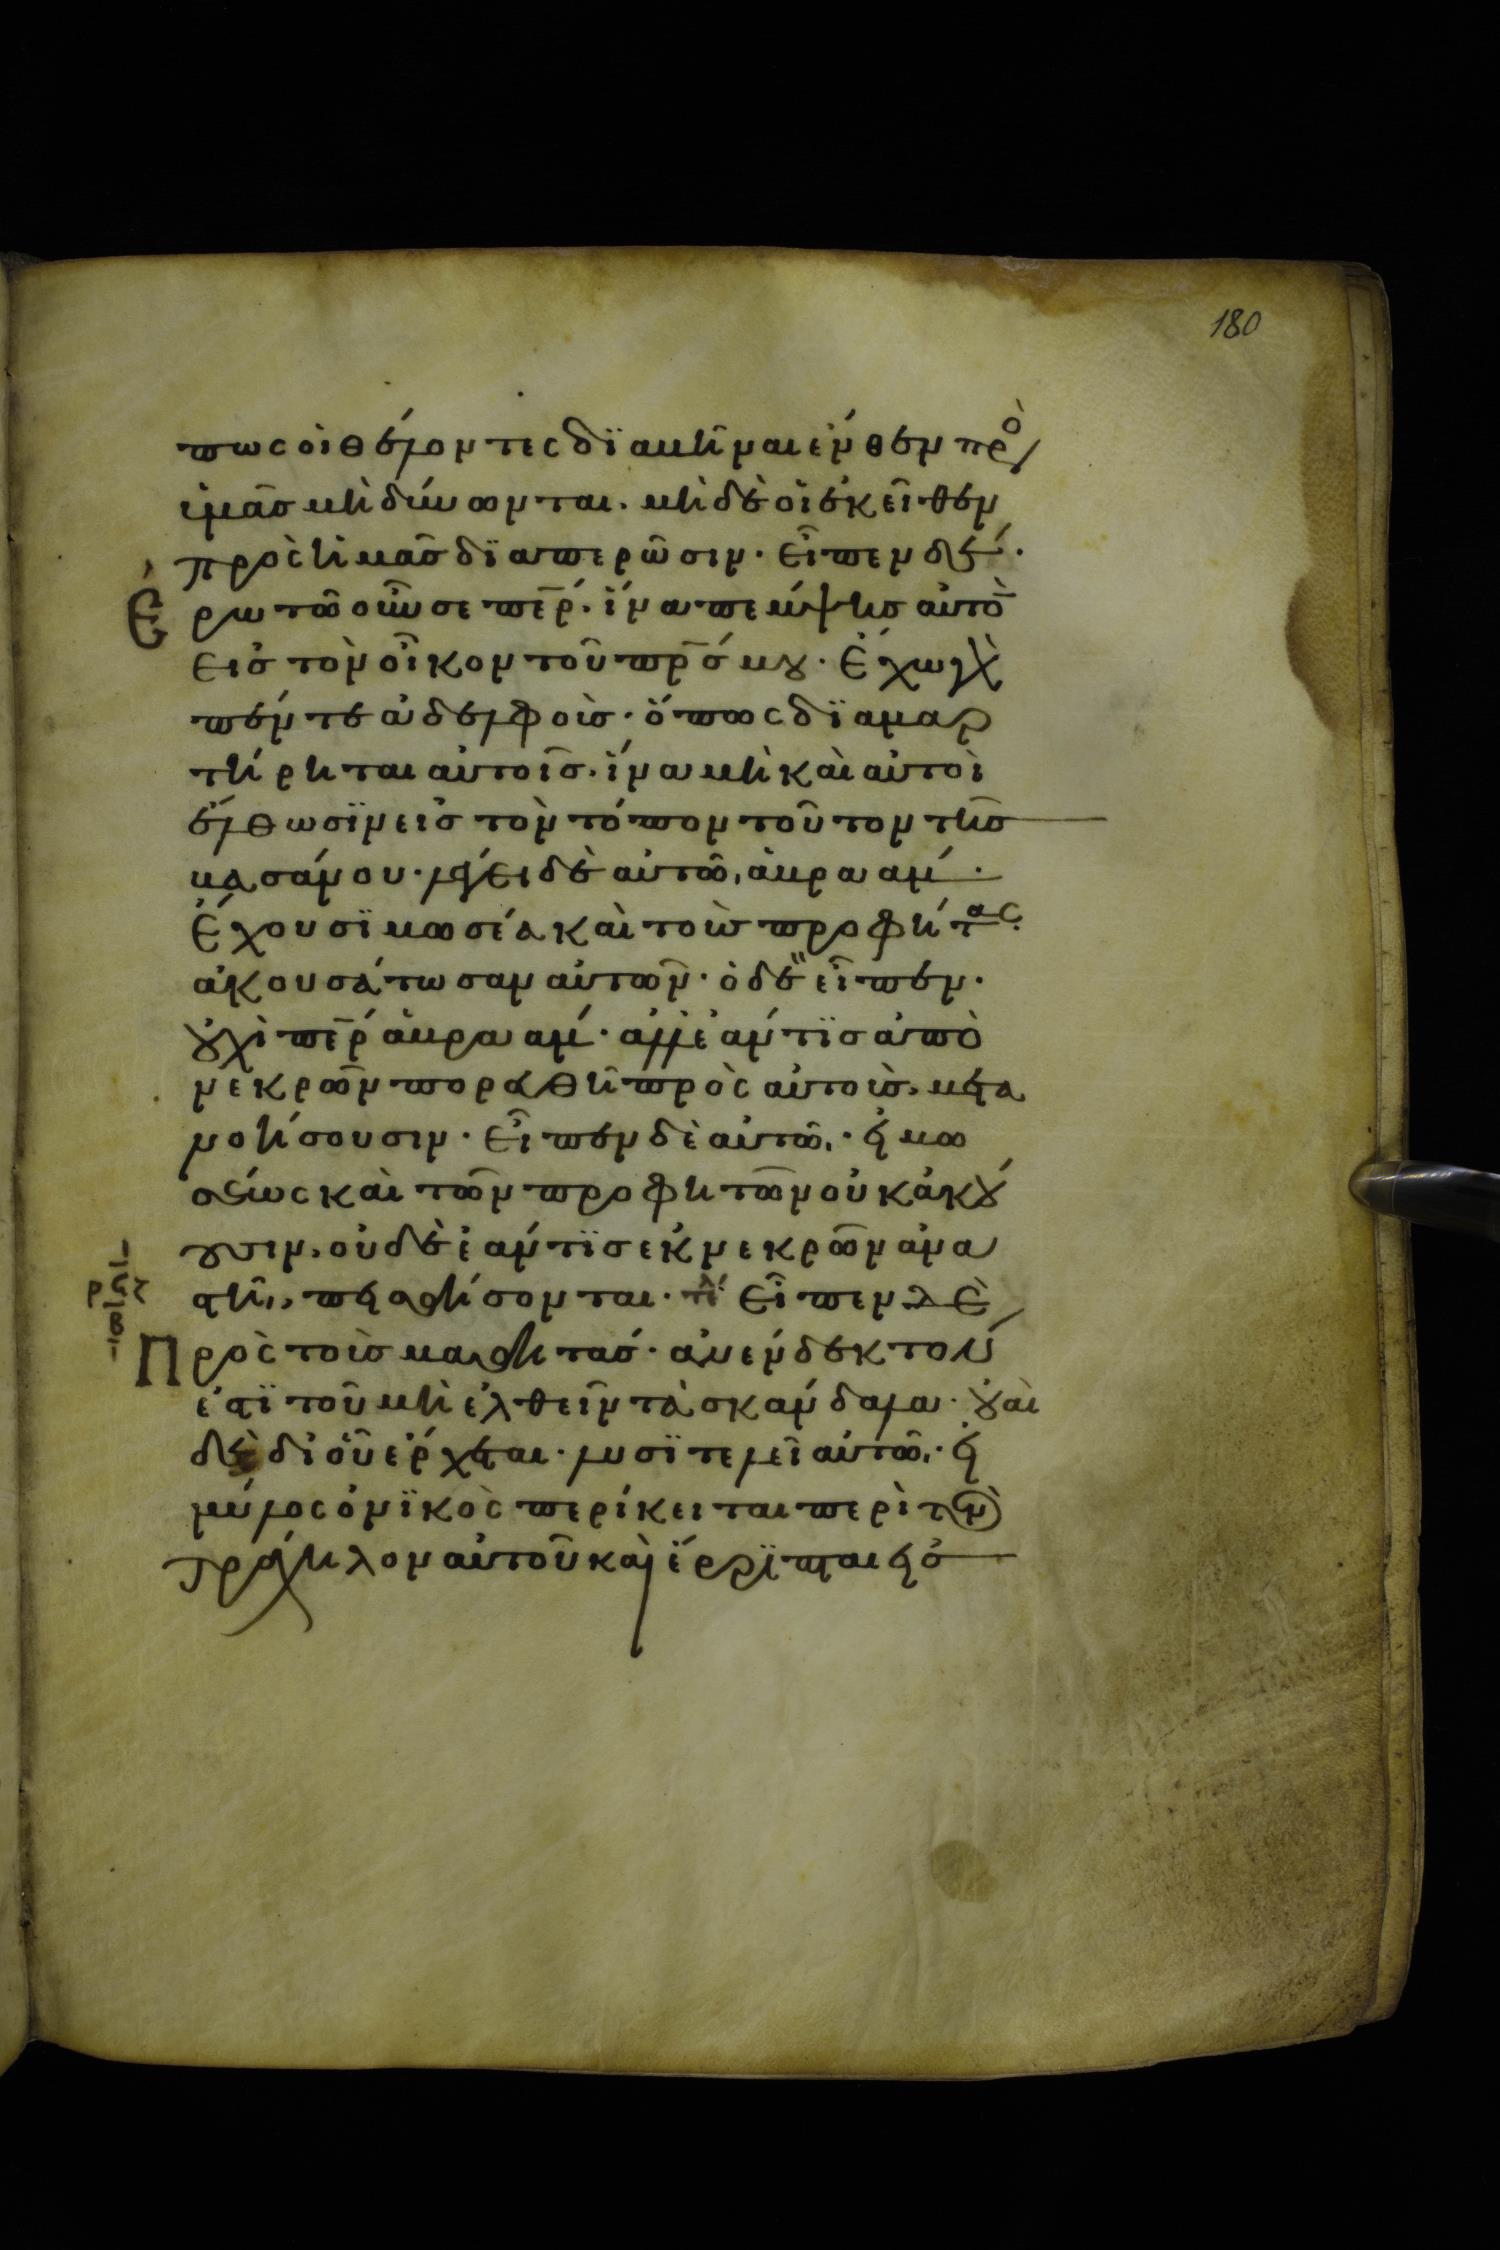 180
πως οἱ θέλοντες δϊαβῆναι ἔνθεν πρὸ
ὑμᾶσ μὴ δύνωνται. μὴ δὲ οἱ ἐκεῖθεν
πρὸς ἡμᾶσ δϊαπερῶσιν. εἶπεν δέ.
Ἐρωτῶ οὖν σε πε̅ρ. ἵνα πέμψησ αὐτὸ̅
εἰσ τὸν οἶκον τοῦ πρ̅σ μου. Ἔχω γὰρ
πέντε ἀδελφοὺσ. ὅπως δϊαμαρ
τύρηται αὐτοῖσ. ἵνα μὴ καὶ αὐτοὶ
ἔλθωσϊν εἰσ τὸν τόπον τοῦτον τῆσ
βασάνου. λέγει δὲ αὐτῶ, ἀβραάμ.
Ἔχουσϊ μωσέα καὶ τοὺσ προφήτας.
ἀκουσάτωσαν αὐτῶν. ὁ δὲ εἶπεν.
οὐχὶ πε̅ρ ἀβραάμ. ἀλλ' ἐάν τϊσ ἀπὸ
νεκρῶν πορευθῆ πρὸς αὐτοὺσ, μετα
νοήσουσιν. Εἶπεν δὲ αὐτῶ,. εἰ μω
σέως καὶ τῶν προφητῶν οὐκ ἀκού
ουσιν, οὐδὲ ἐάν τϊσ ἐκ νεκρῶν ἀνα
στῆ,, πεισθήσονται. τλ Εἶπεν δὲ
ρϟζ
β
Πρὸς τοὺσ μαθητάσ. ἀνένδεκτόν
ἐστϊ τοῦ μὴ ἐλθεῖν τὰ σκάνδαλα. οὐαὶ
δὲ δι' οὗ ἔρχεται. λυσϊτελεῖ αὐτῶ,. εἰ
μύλος ὀνϊκὸς περίκειται περὶ τὸν
τράχηλον αὐτοῦ καὶ ἔρρϊπται εἰσ